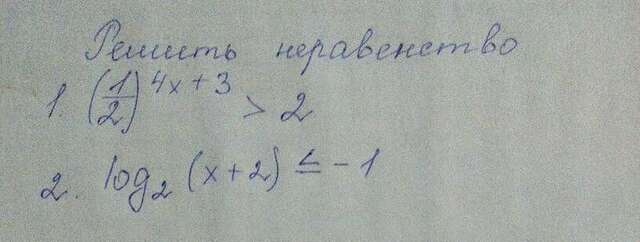 Решить неравенство
1. (1/2)^(4x+3) > 2
2. log₂ (x+2) ≤ -1